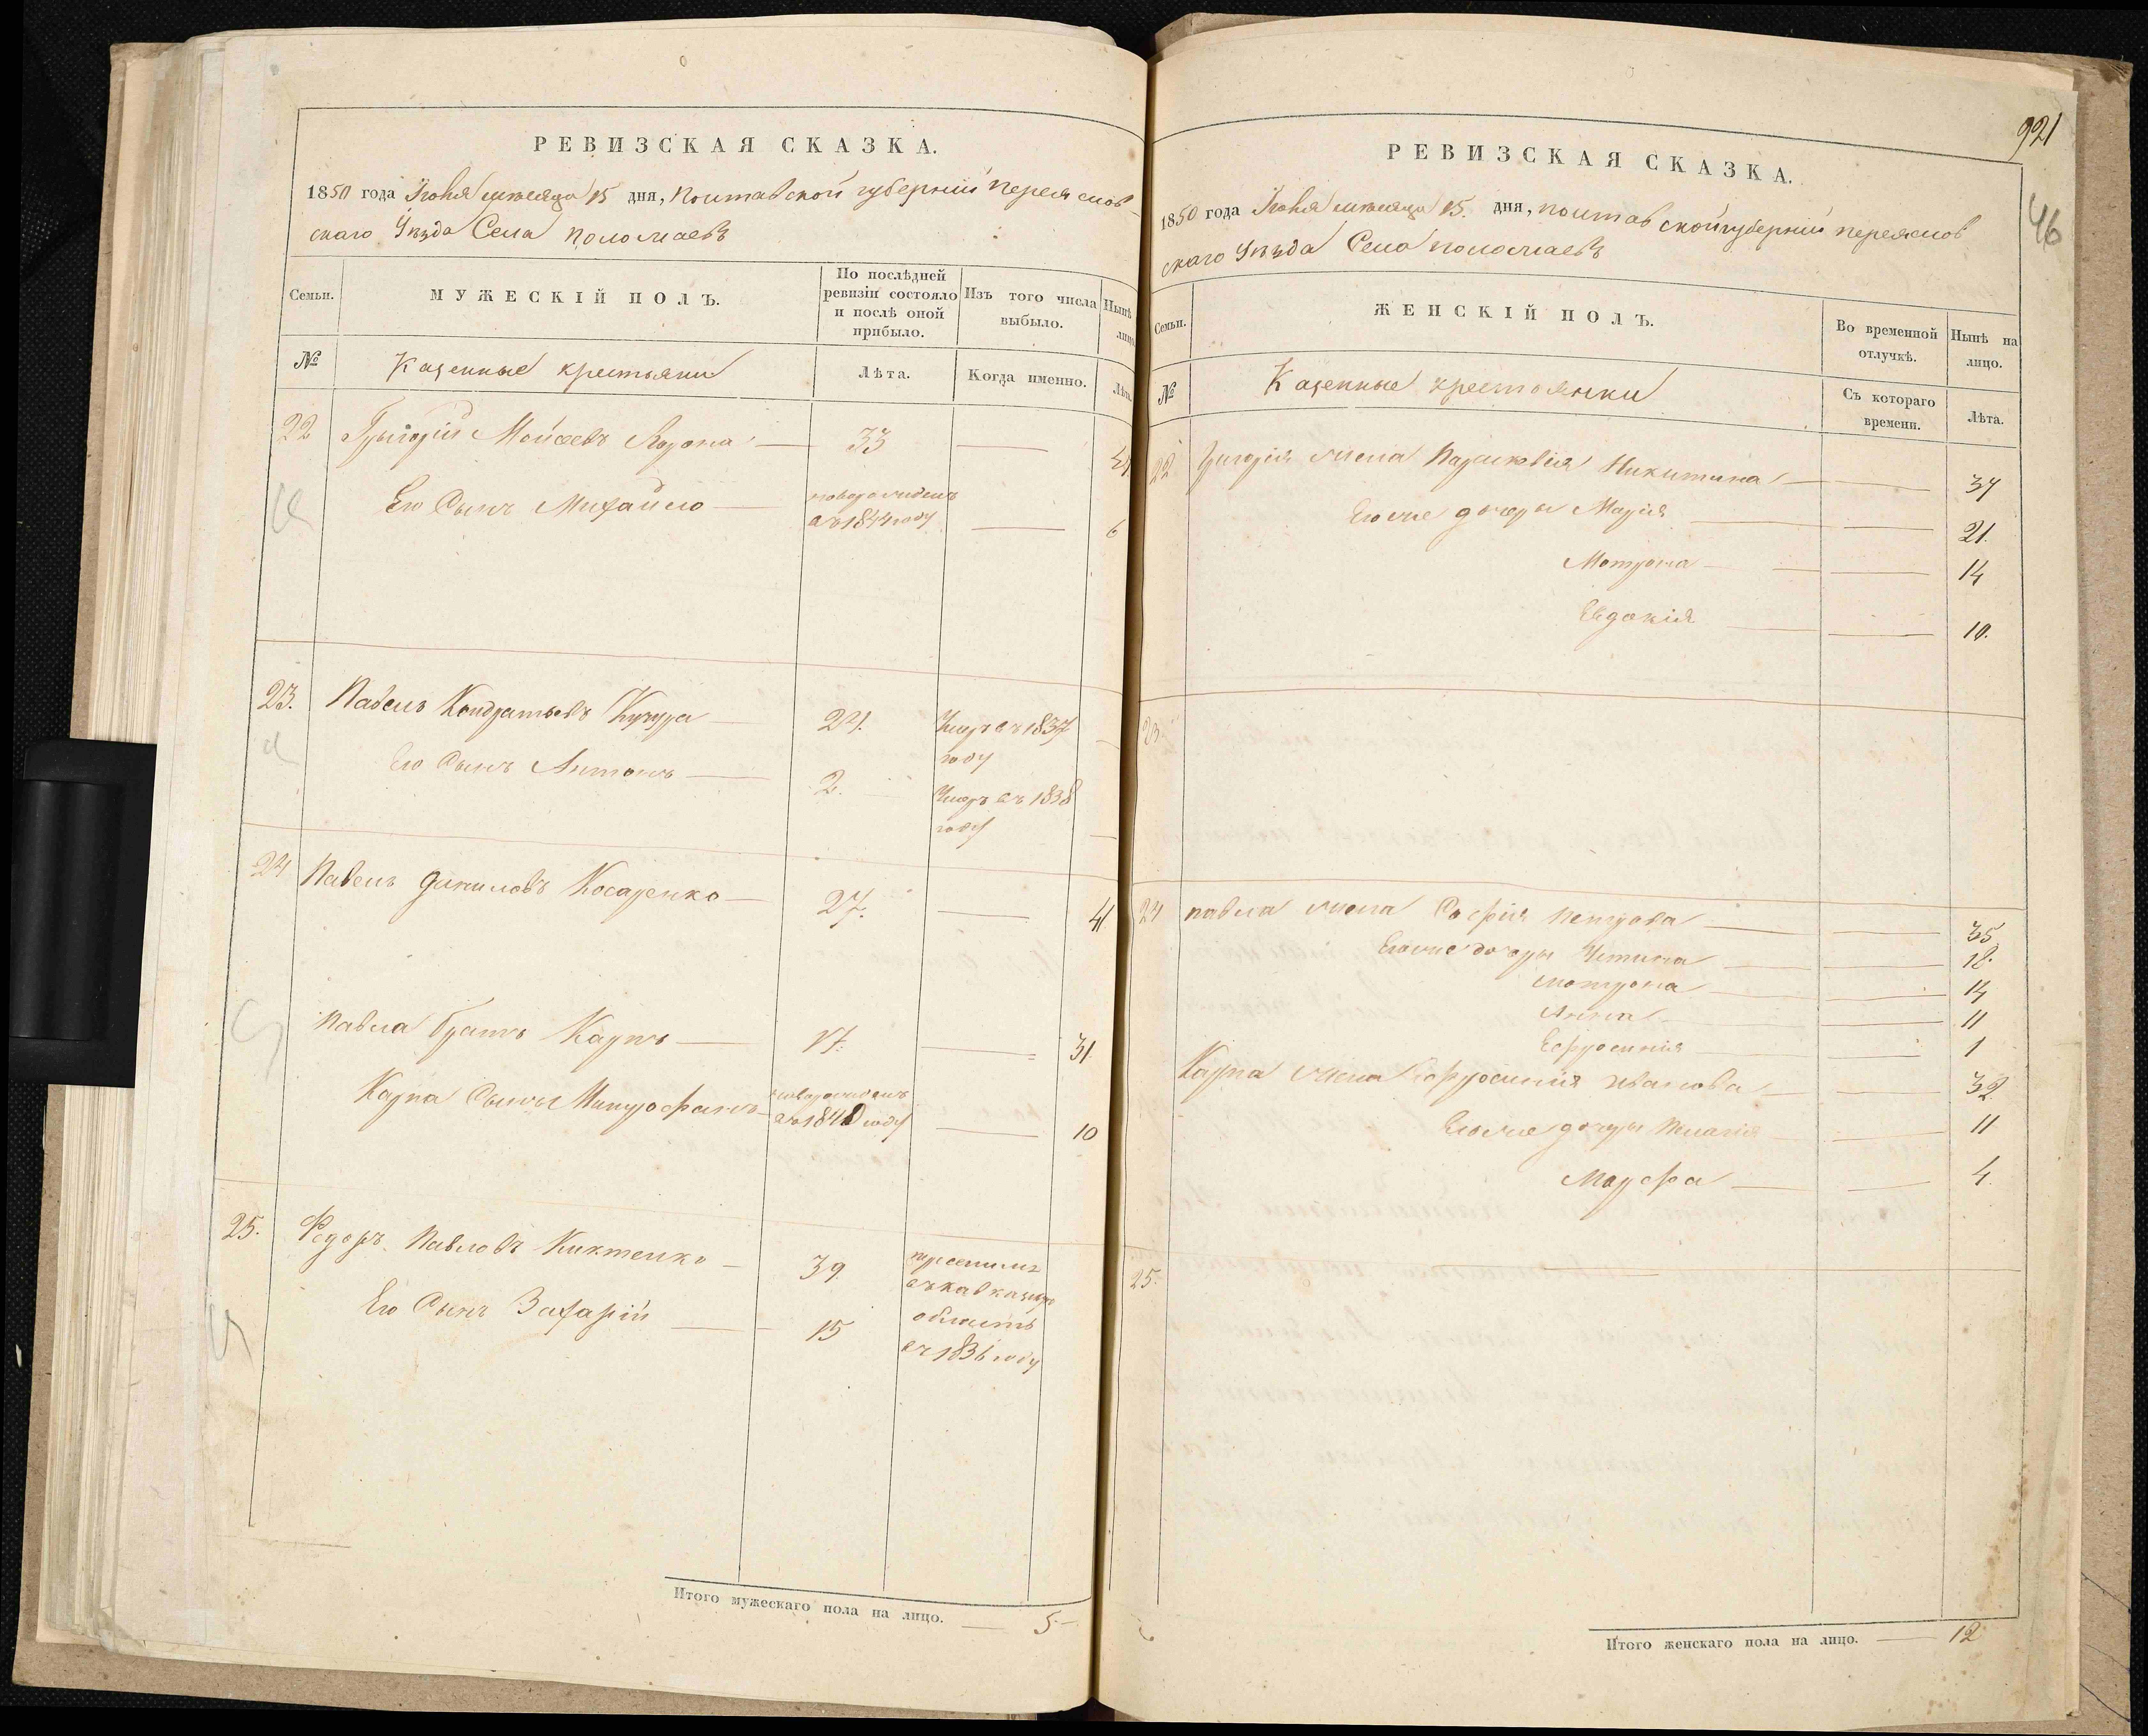 РЕВИЗСКАЯ СКАЗКА.
1850 года Іюня мѣсяца 15 дня, Полтавской губерніи Переяслов-
скаго Уѣзда Села Пологъ
Семьи.
МУЖЕСКІЙ ПОЛЪ.
По послѣдней ревизіи состояло и послѣ оной прибыло.
Изъ того числа выбыло.
Нынѣ
лицо
№
Казенные крестьяни
Лѣта.
Когда именно.
Лѣта.
22 Григорій Мойсеевъ 33
Его Сынъ Михайло новорожденъ 6
въ 1844 году
23. Павелъ Кондратьевъ Кучура Умеръ въ 1837
году
Его Сынъ Антонъ 2. Умеръ въ 1838
году
24 Павелъ Даниловъ Косаренко 27. 41
Павла братъ Карпъ 17. 31.
Карпа Сынъ Митрофанъ новорожденъ 10
въ 1840 году
25. Федоръ Павловъ Киктенко 39
Его Сынъ Захарій 15
въ кавказскую
область
въ 1836 году
Итого мужескаго пола на лицо. 5
921
46
РЕВИЗСКАЯ СКАЗКА.
1850 года Іюня мѣсяца 15. дня, Полтавской губерніи Переяслов
скаго Уѣзда Села
Семьи.
ЖЕНСКІЙ ПОЛЪ.
Во временной отлучкѣ.
Нынѣ на лицо.
№
Казенные крестьянки
Съ котораго времени.
Лѣта.
22 Григорія жена Параскевія Никитина 34
Его же дочери Марія 21.
Мотрона 14
Евдокія 10.
23.
24 Павла жена Софія Петрова 35
Его же дочери Устина 18.
Мотрона 14
Анна 11
Ефросинія 1
Карпа жена Ефросинія Иванова 32
Его же дочери Пелагія 11
Марфа 4.
25.
Итого женскаго пола на лицо. 12